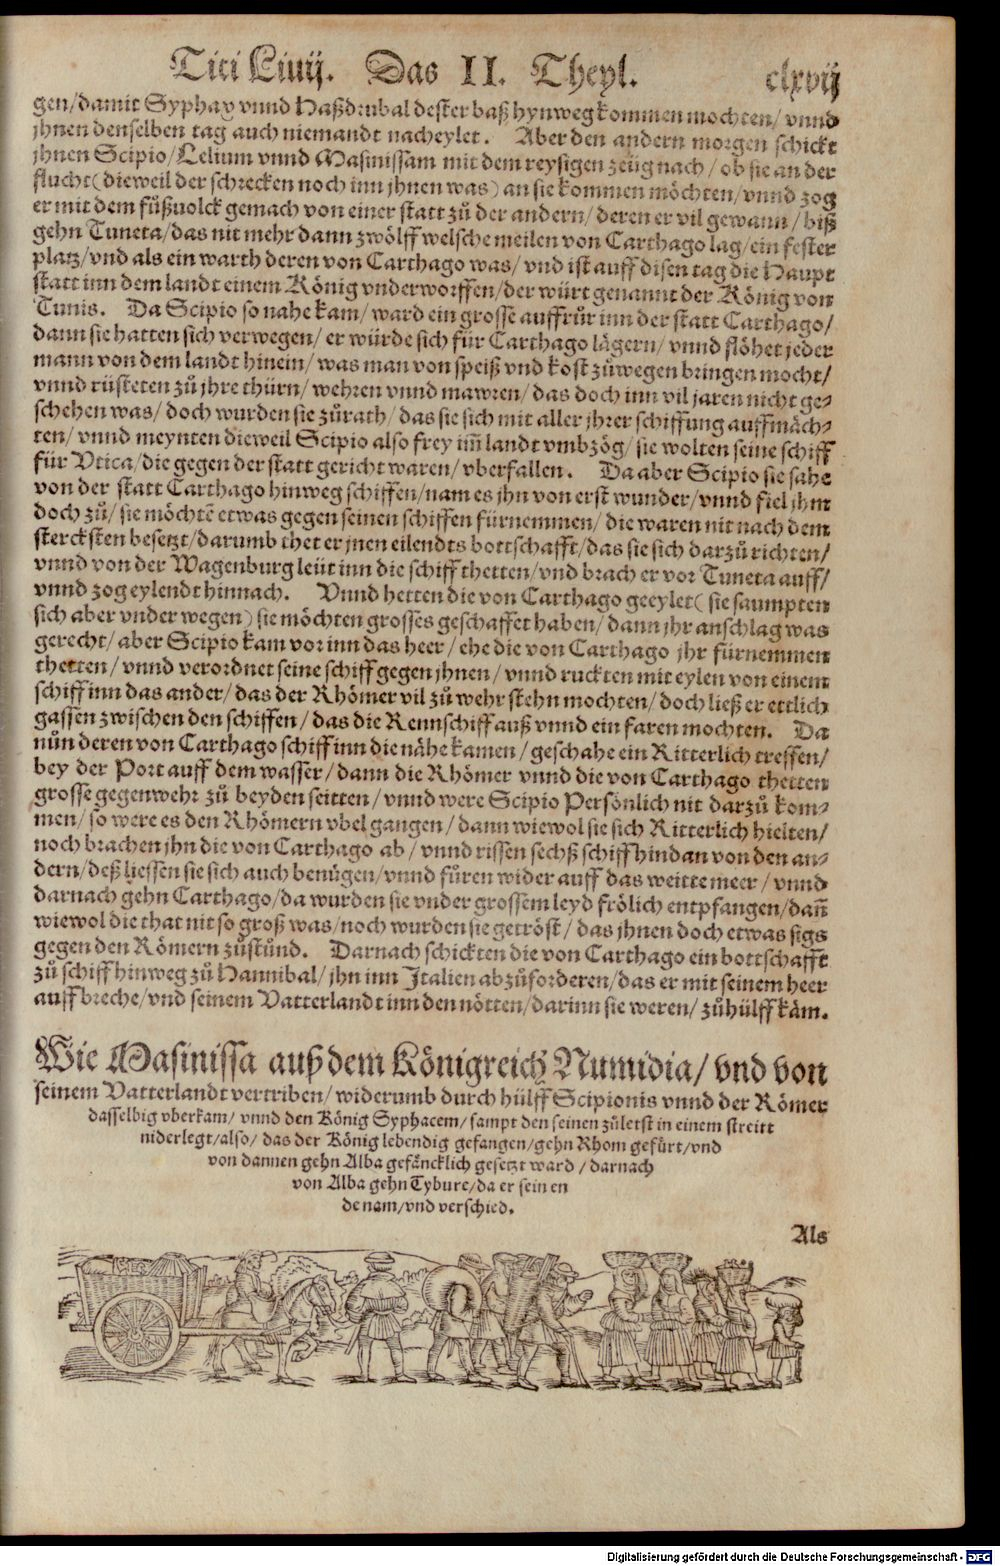 Titi Liuij. Das II. Theyl. clxvij
gen/damit Syphax vnnd Haßdrubal dester baß hynweg kommen mochten/ vnnd
jhnen denselben tag auch niemandt nacheylet. Aber den andern morgen schickt
jhnen Scipio/Lelium vnnd Masinissam mit dem reysigen zeüg nach/ ob sie an der
flucht(dieweil der schrecken noch inn jhnen was) an sie kommen möchten/vnnd zog
er mit dem fůßuolck gemach von einer statt zů der andern/ deren er vil gewann/ biß
gehn Tuneta/das nit mehr dann zwölff welsche meilen von Carthago lag/ein fester
platz/vnd als ein warth deren von Carthago was/ vnd ist auff disen tag die Haupt
statt inn dem landt einem König vnderworffen/der würt genannt der König von
Tunis. Da Scipio so nahe kam/ ward ein grosse auffrůr inn der statt Carthago/
dann sie hatten sich verwegen/ er würde sich für Carthago lägern/ vnnd flöhet jeder
mann von dem landt hinein/ was man von speiß vnd kost zůwegen bringen mocht/
vnnd rüsteten zů jhre thürn/ wehren vnnd mawren/ das doch inn vil jaren nicht ge-
schehen was/ doch wurden sie zůrath/ das sie sich mit aller jhrer schiffung auffmäch-
ten/ vnnd meynten dieweil Scipio also frey im̃ landt vmbzög/ sie wolten seine schiff
für Vtica/die gegen der statt gericht waren/ vberfallen. Da aber Scipio sie sahe
von der statt Carthago hinweg schiffen/nam es jhn von erst wunder/vnnd fiel jhm
doch zů/ sie möchtẽ etwas gegen seinen schiffen fürnemmen/ die waren nit nach dem
stercksten besetzt/darumb thet er jnen eilendts bottschafft/das sie sich darzů richten/
vnnd von der Wagenburg leüt inn die schiff thetten/vnd brach er vor Tuneta auff/
vnnd zog eylendt hinnach. Vnnd hetten die von Carthago geeylet( sie saumpten
sich aber vnder wegen) sie möchten grosses geschaffet haben/ dann jhr anschlag was
gerecht/ aber Scipio kam vor inn das heer/ ehe die von Carthago jhr fürnemmen
thetten/ vnnd verordnet seine schiff gegen jhnen/ vnnd ruckten mit eylen von einem
schiff inn das ander/ das der Rhömer vil zů wehr stehn mochten/ doch ließ er ettlich
gassen zwischen den schiffen/ das die Rennschiff auß vnnd ein faren mochten. Da
nůn deren von Carthago schiff inn die nähe kamen/ geschahe ein Ritterlich treffen/
bey der Port auff dem wasser/ dann die Rhömer vnnd die von Carthago thetten
grosse gegenwehr zů beyden seitten/ vnnd were Scipio Persönlich nit darzů kom-
men/ so were es den Rhömern vbel gangen/ dann wiewol sie sich Ritterlich hielten/
noch brachen jhn die von Carthago ab/ vnnd rissen sechß schiff hindan von den an-
dern/deß liessen sie sich auch benügen/vnnd fůren wider auff das weitte meer/ vnnd
darnach gehn Carthago/da wurden sie vnder grossem leyd frölich entpfangen/dañ
wiewol die that nit so groß was/noch wurden sie getröst/ das jhnen doch etwas sigs
gegen den Römern zůstünd. Darnach schickten die von Carthago ein bottschafft
zů schiff hinweg zů Hannibal/ jhn inn Italien abzůforderen/das er mit seinem heer
auffbreche/vnd seinem Vatterlandt inn den nötten/darinn sie weren/ zůhülff käm.
Wie Masinissa auß dem Königreich Numidia/ vnd von
seinem Vatterlandt vertriben/ widerumb durch hülff Scipionis vnnd der Römer
dasselbig vberkam/ vnnd den König Syphacem/ sampt den seinen zůletst in einem streitt
niderlegt/also/ das der König lebendig gefangen/gehn Rhom gefürt/vnd
von dannen gehn Alba gefäncklich gesetzt ward/ darnach
von Alba gehn Tybure/da er sein en
de nam/vnd verschied.
Als
Digitalisierung gefördert durch die Deutsche Forschungsgemeinschaft - DFG